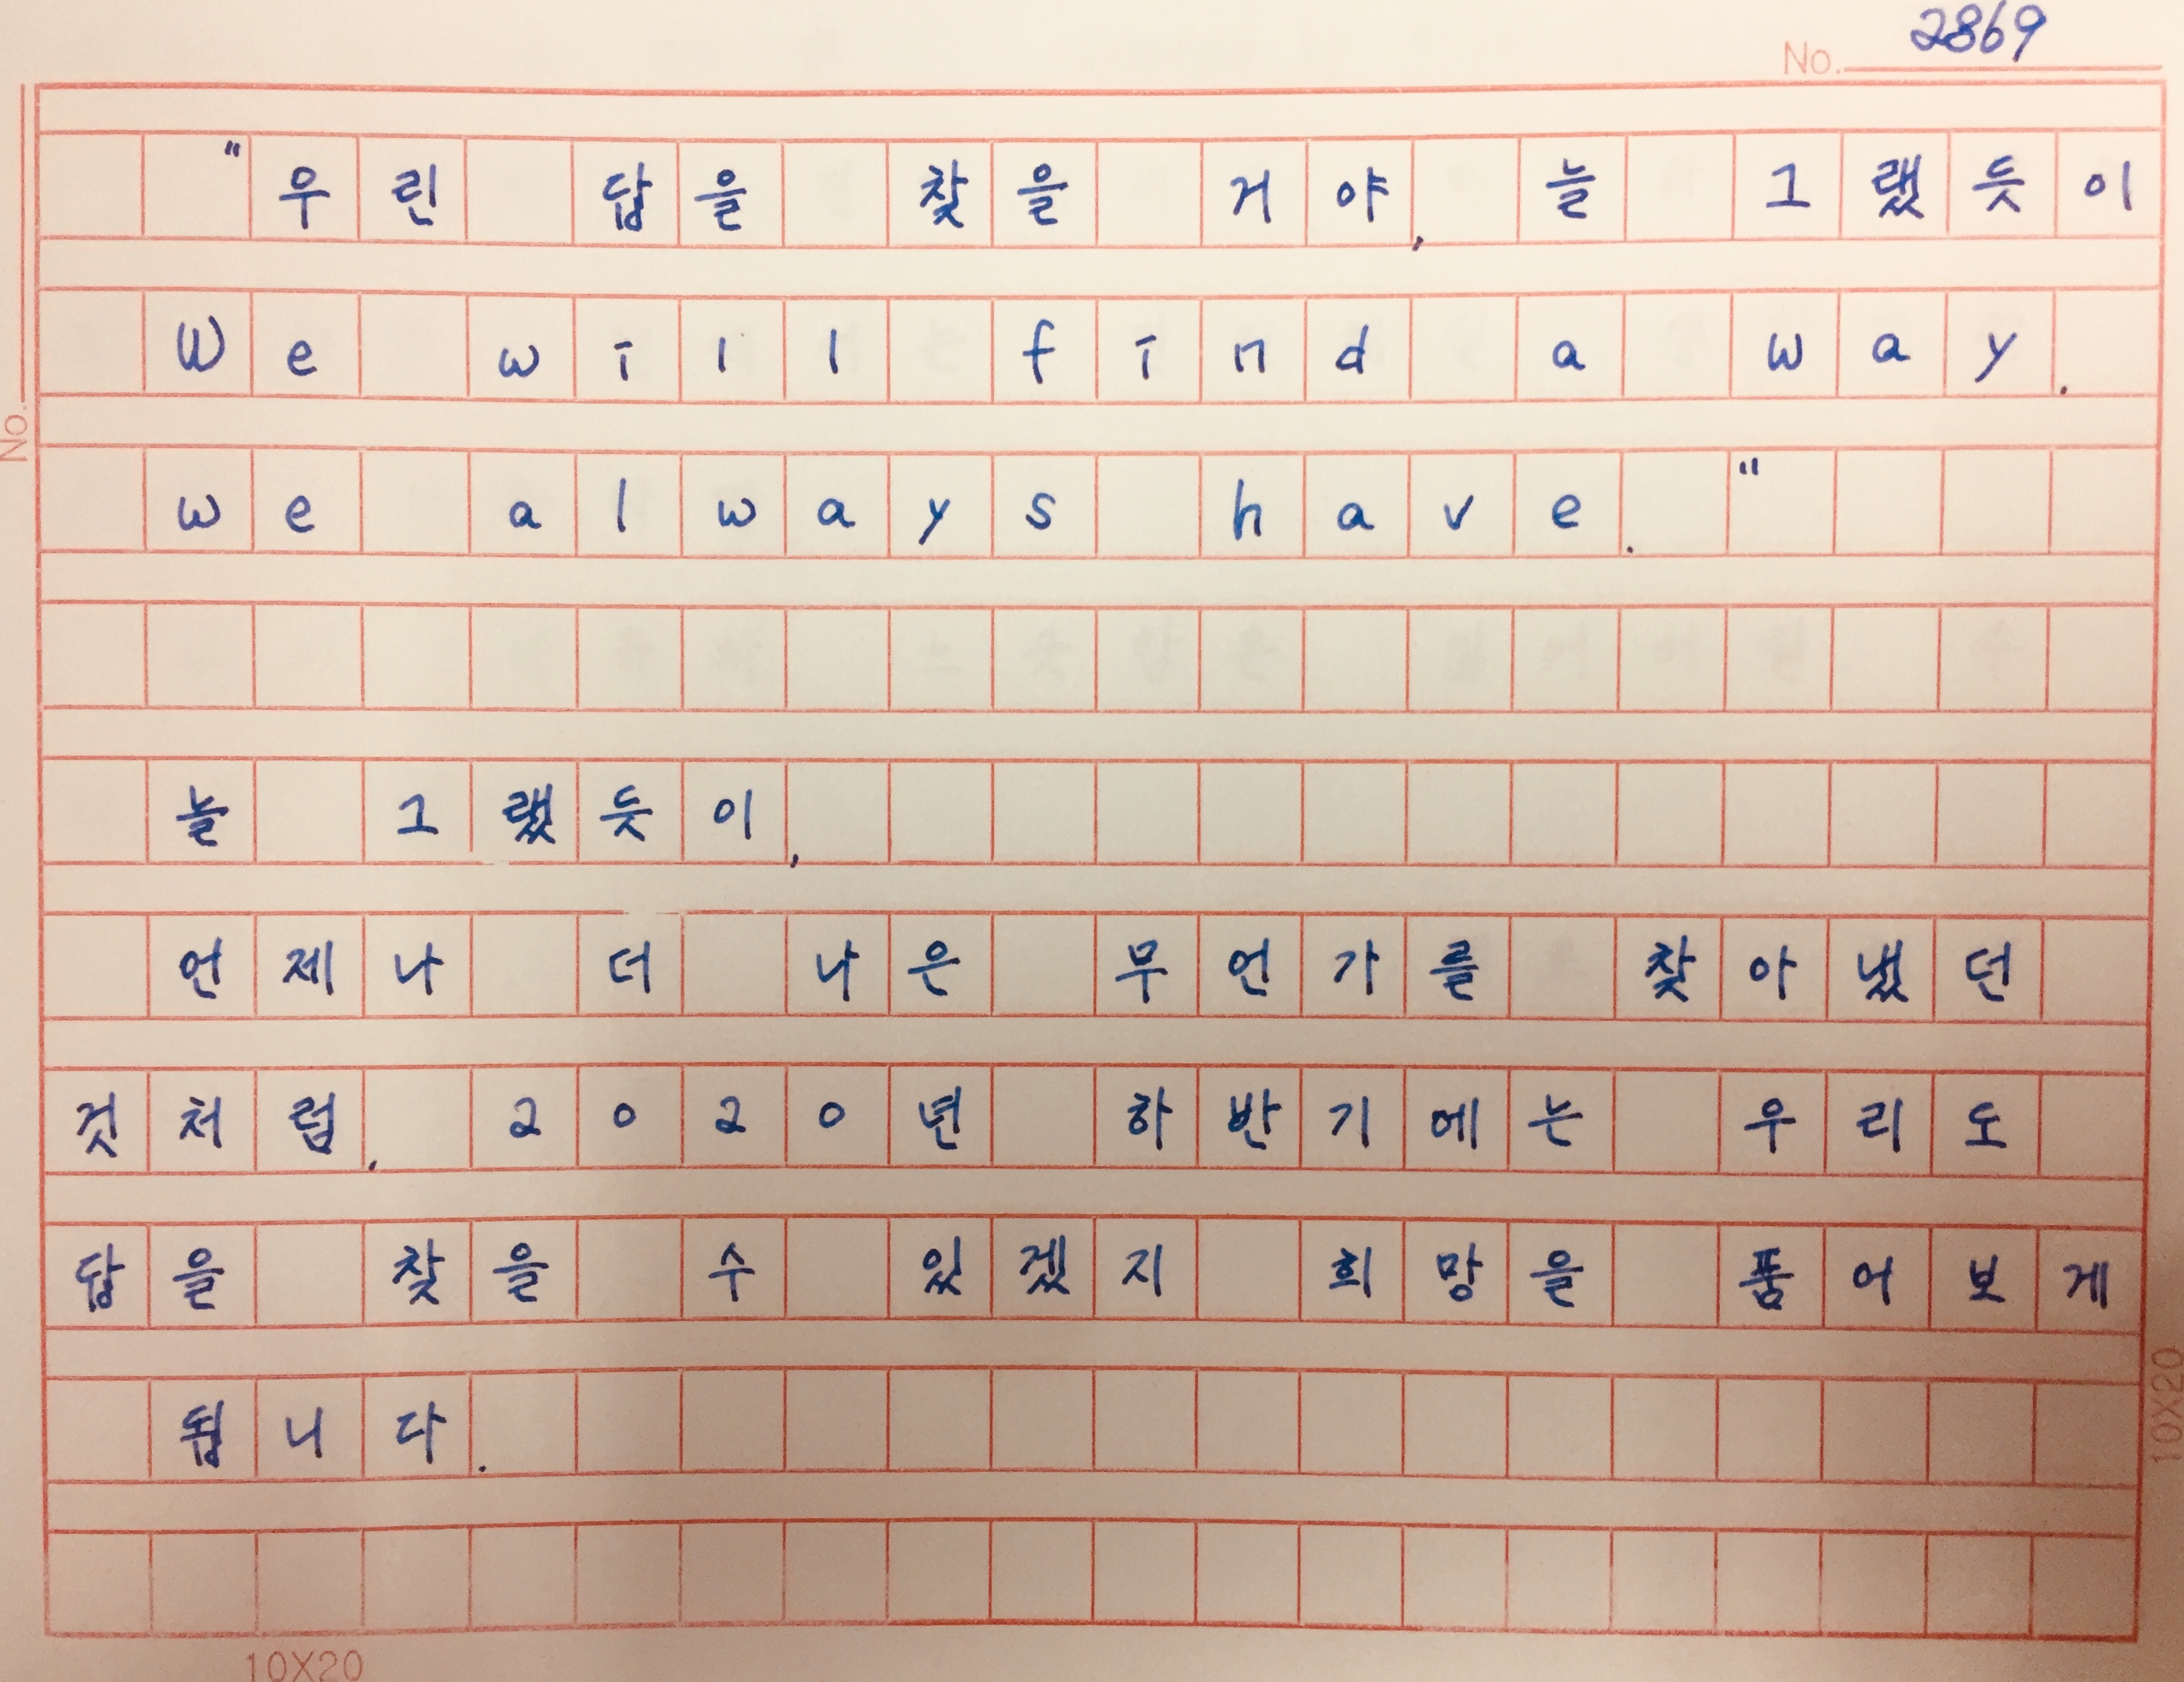 No. 2869
"우린 답을 찾을 거야, 늘 그랬듯이
We will find a way.
we always have."
늘 그랬듯이,
언제나 더 나은 무언가를 찾아냈던
것처럼, 2020년 하반기에는 우리도
답을 찾을 수 있겠지 희망을 품어보게
됩니다.
No.
10X20
10X20